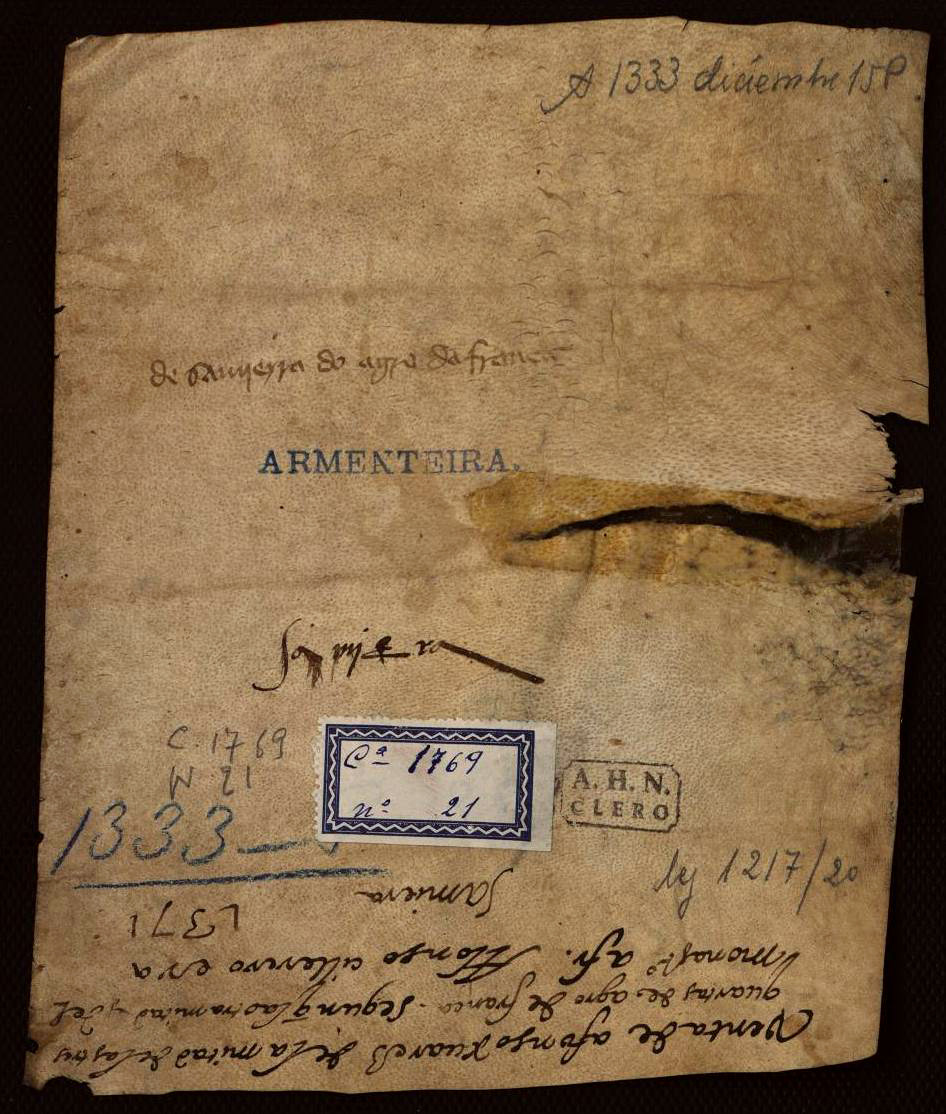 A 1333 diciembre 15 P
de sanyeyra do agro da franca
ARMENTEIRA.
C. 1769
N 21
Cª 1769
nº 21
A. H. N.
CLERO
1333
leg 1217/20
Venta de afonso xuares de la mitad de las tres
quartas de agro de franca. segun q̃ la otra mitad, es del
monastº a fr. Alonso cillerero era
1371
Samieira